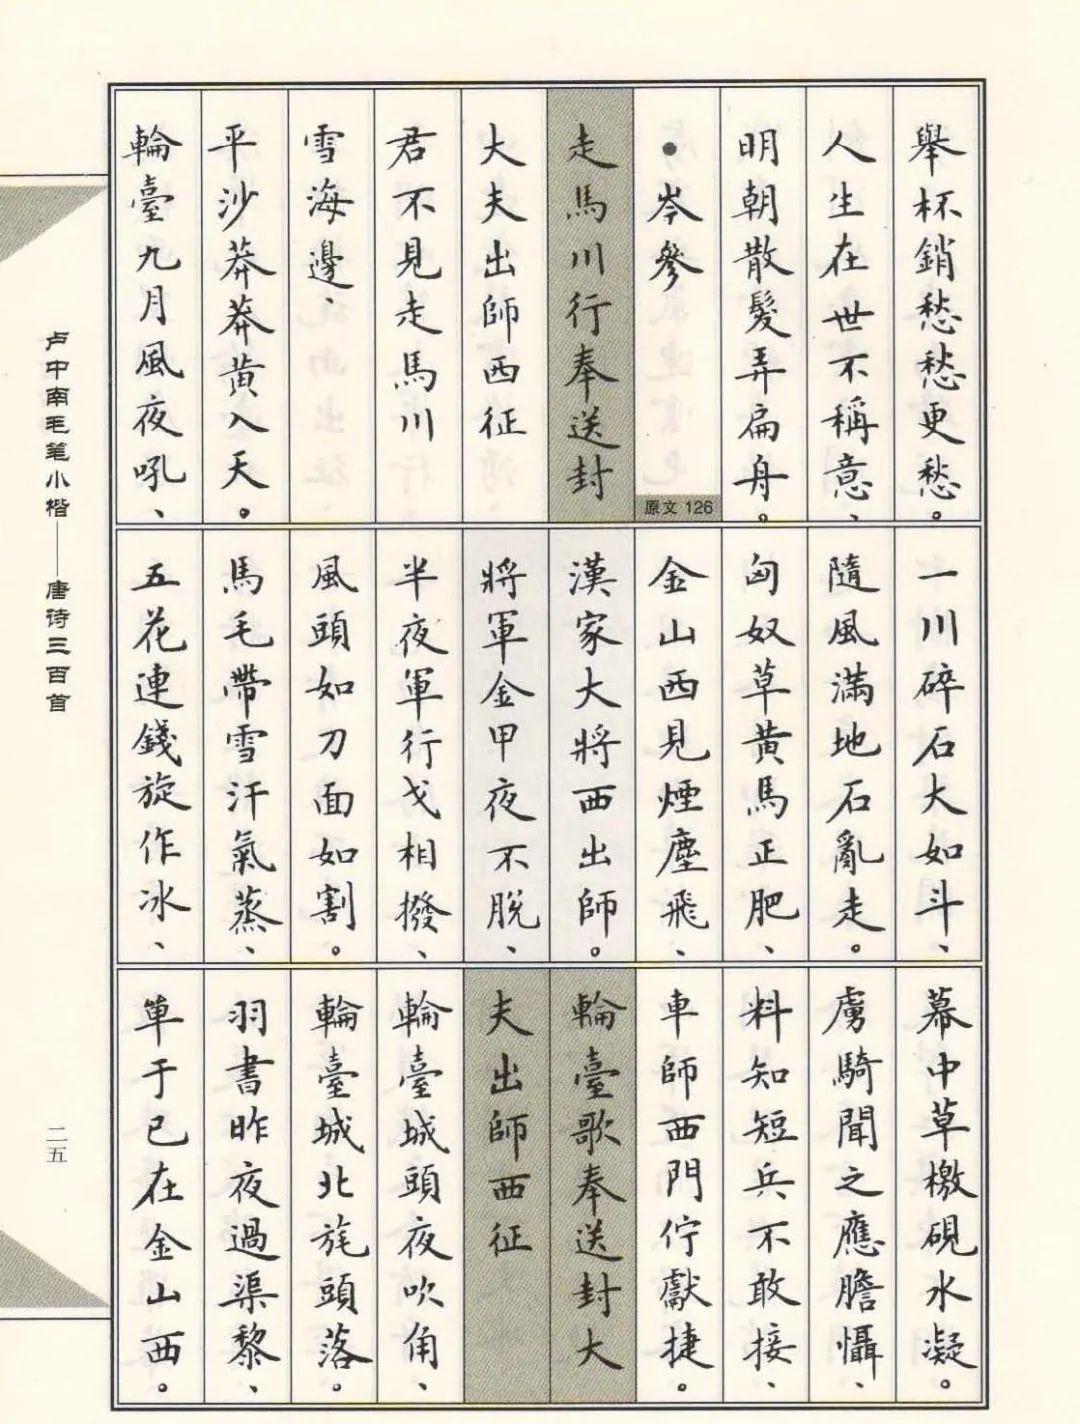 舉杯銷愁愁更愁。
人生在世不稱意、
明朝散髮弄扁舟。
•岑參
原文 126
走馬川行奉送封
大夫出師西征
君不見走馬川
雪海邊、
平沙莽莽黃入天。
輪臺九月風夜吼、
一川碎石大如斗、
隨風滿地石亂走。
匈奴草黃馬正肥、
金山西見煙塵飛、
漢家大將西出師。
將軍金甲夜不脫、
半夜軍行戈相撥、
風頭如刀面如割。
馬毛帶雪汗氣蒸、
五花連錢旋作冰、
幕中草檄硯水凝。
虜騎聞之應膽懾、
料知短兵不敢接、
車師西門佇獻捷。
輪臺歌奉送封大
夫出師西征
輪臺城頭夜吹角、
輪臺城北旄頭落。
羽書昨夜過渠黎、
單于已在金山西。
卢中南毛笔小楷——唐诗三百首
二五